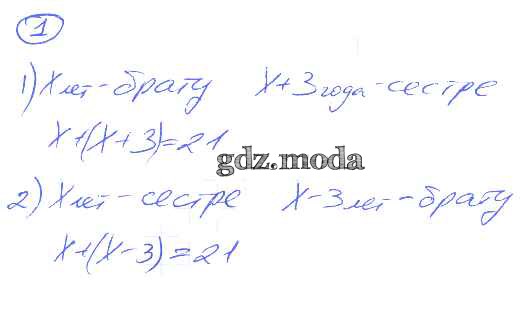 1
1) X лет - брату X+3 года - сестре
X+(X+3)=21
gdz.moda
2) X лет - сестре X-3 лет - брату
X+(X-3)=21